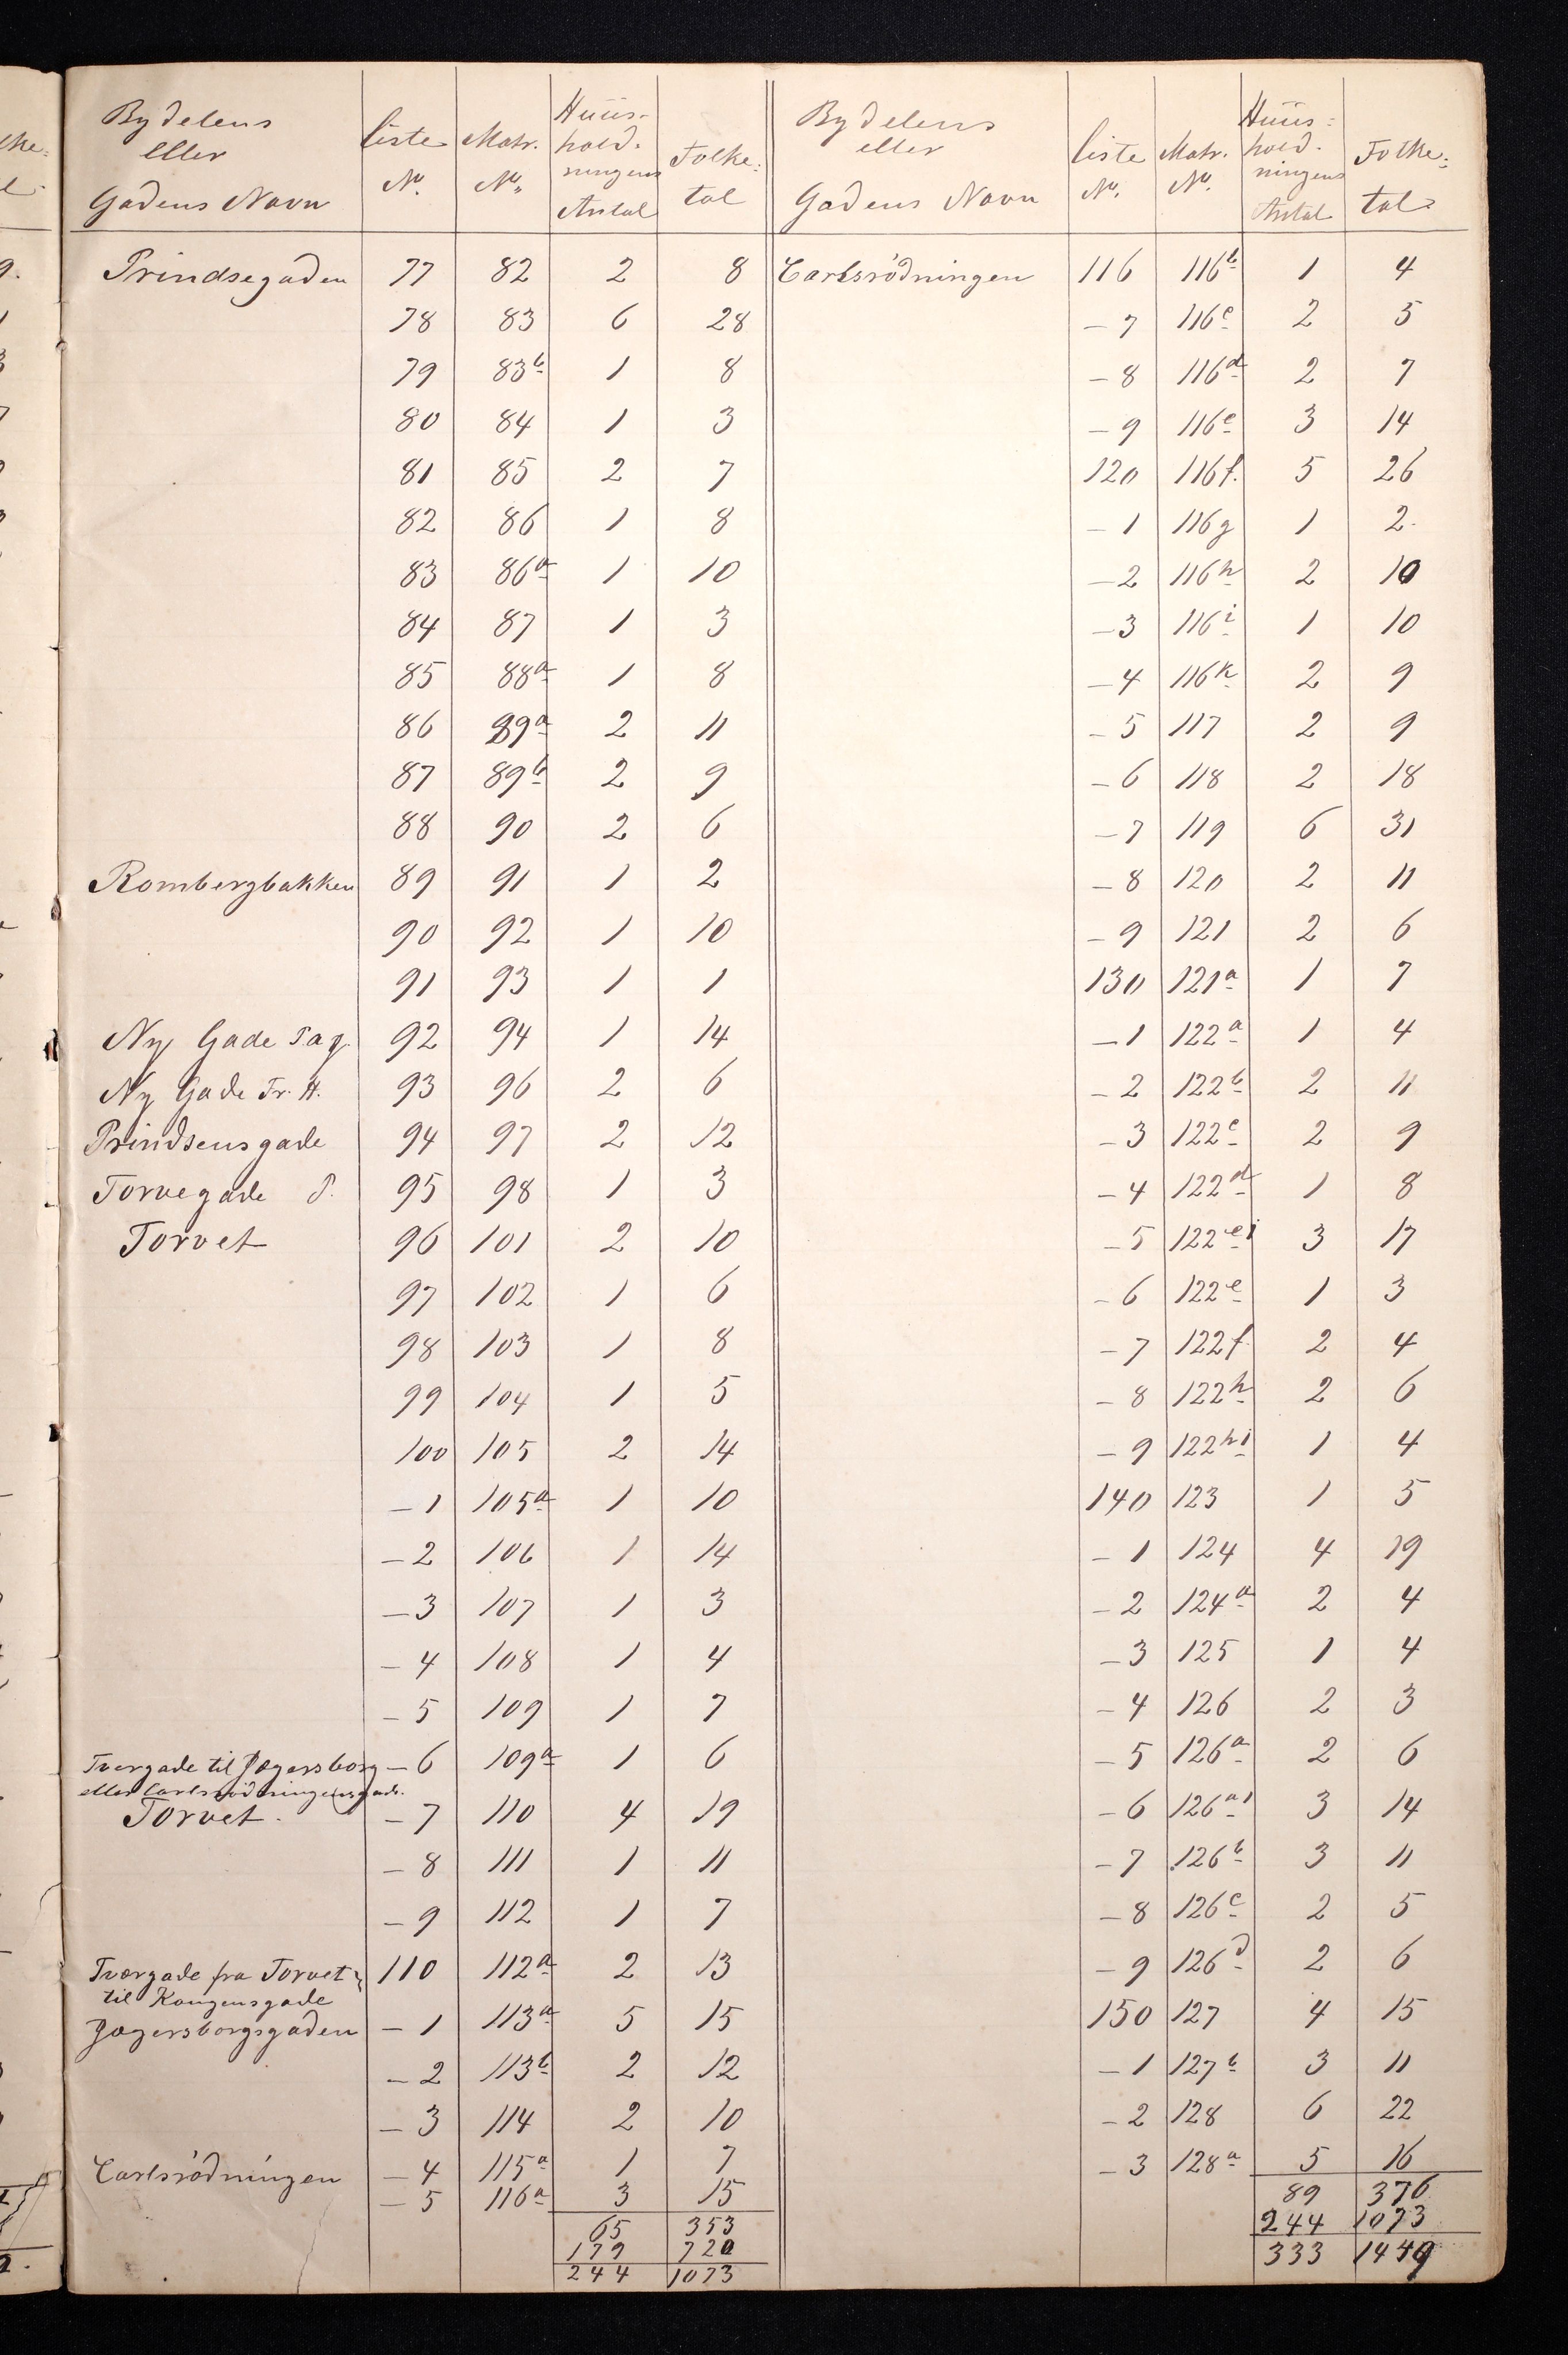 Bydelens eller Gadens Navn | Liste No. | Matr. No. | Huus-hold-ningens Antal | Folke-tal
Prindsegaden 77 82 2 8
78 83 6 28
79 83b 1 8
80 84 1 3
81 85 2 7
82 86 1 8
83 86a 1 10
84 87 1 3
85 88a 1 8
86 89a 2 11
87 89b 2 9
88 90 2 6
Rombergbakken 89 91 1 2
90 92 1 10
91 93 1 1
Ny Gade 92 94 1 14
Ny Gade Fr. H. 93 96 2 6
Prindsensgade 94 97 2 12
Torvegade P. 95 98 1 3
Torvet 96 101 2 10
97 102 1 6
98 103 1 8
99 104 1 5
100 105 2 14
- 1 105a 1 10
- 2 106 1 14
- 3 107 1 3
- 4 108 1 4
- 5 109 1 7
Tvergade til Jægersborg - 6 109a 1 6
eller Carlsrödningensgade.
Torvet. - 7 110 4 19
- 8 111 1 11
- 9 112 1 7
Tvorgade fra Torvet 110 112a 2 13
til Kongensgade
Jægersborgsgaden - 1 113a 5 15
- 2 113b 2 12
- 3 114 2 10
Carlsrödningen - 4 115a 1 7
- 5 116a 3 15
65 353
179 720
244 1073
Bydelens eller Gadens Navn | Liste No. | Matr. No. | Huus-hold-ningens Antal | Folke-tal
Carlsrödningen 116 116b 1 4
- 7 116c 2 5
- 8 116d 2 7
- 9 116e 3 14
120 116f. 5 26
- 1 116g 1 2.
- 2 116h 2 10
- 3 116i 1 10
- 4 116k 2 9
- 5 117 2 9
- 6 118 2 18
- 7 119 6 31
- 8 120 2 11
- 9 121 2 6
130 121a 1 7
- 1 122a 1 4
- 2 122b 2 11
- 3 122c 2 9
- 4 122d 1 8
- 5 122e1 3 17
- 6 122e 1 3
- 7 122f. 2 4
- 8 122h 2 6
- 9 122h1 1 4
140 123 1 5
- 1 124 4 19
- 2 124a 2 4
- 3 125 1 4
- 4 126 2 3
- 5 126a 2 6
- 6 126a1 3 14
- 7 126b 3 11
- 8 126c 2 5
- 9 126d 2 6
150 127 4 15
- 1 127b 3 11
- 2 128 6 22
- 3 128a 5 16
89 376
244 1073
333 1449